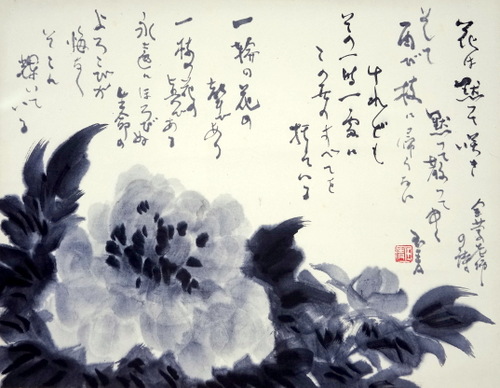 花は黙って咲き
黙って散って行く
そして
再び枝に帰らない
けれども
その一時一處に
この世のすべてを
托している
一輪の花の
聲であり
一枝の花の
真である
永遠にほろびぬ
生命の
よろこびが
悔なく
そこに
輝いている
老師
の詩